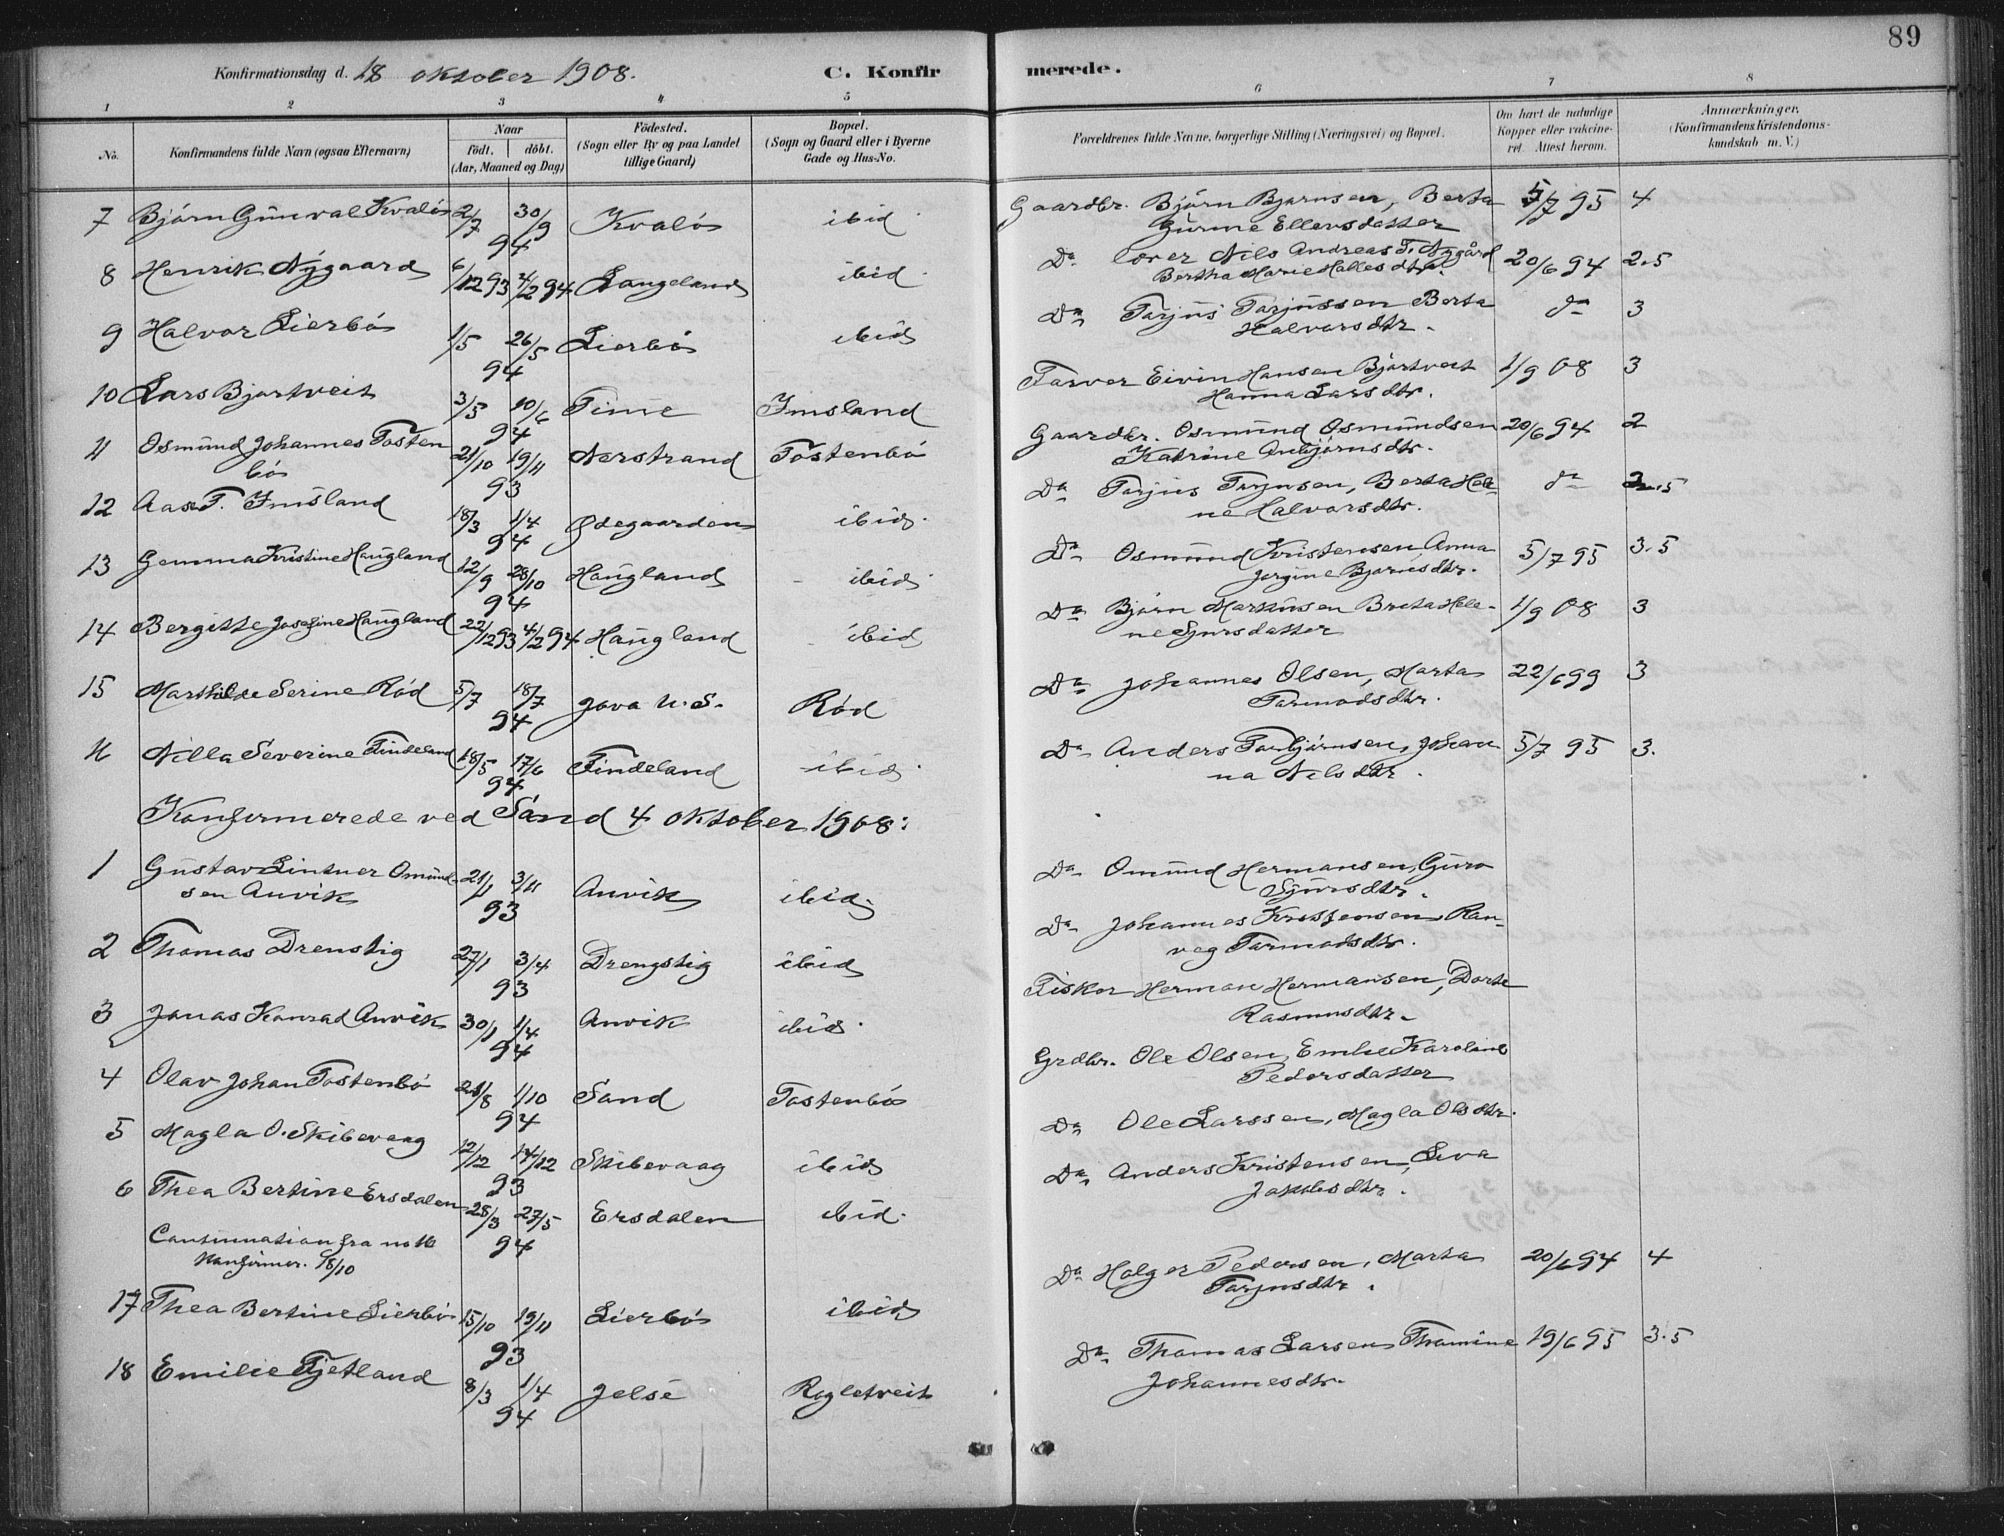 89
Konfirmationsdag d. 18 oktober 1908.
C. Konfirmerede.
1 2 3 4 5 6 7 8
No. Konfirmandens fulde Navn (ogsaa Efternavn)
Naar
Födt. döbt.
(Aar, Maaned og Dag)
Födested.
(Sogn eller By og paa Landet tillige Gaard)
Bopæl.
(Sogn og Gaard eller i Byerne Gade og Hus-No.
Forældrenes fulde Navne, borgerlige Stilling (Næringsvei) og Bopæl.
Om havt de naturlige Kopper eller vakcineret. Attest herom.
Anmærkninger.
(Konfirmandens Kristendomskundskab m. V.)
7 Björn Gunval Kvalös 2/7 30/9 94 Kvalös ibid. Gaardbr. Björn Bjørnsen, Berta Gurine Ellensdatter 5/7 95 4
8 Henrik Nygaard 6/12 93 4/2 94 Langeland ibid. Do Nils Andreas T. Nygård Bertha Marie Hallesdtr. 20/6 94 2.5
9 Halvor Lierbö 1/5 26/5 94 Lierbö ibid Do Tarjus Tarjussen Berta Halvorsdtr. do 3
10 Lars Bjortveit 3/5 10/6 94 Time Imsland Farver Eivin Hansen Bjortveit Hanna Larsdtr. 1/9 08 3
11 Osmund Johannes Tostenbö 21/10 19/11 93 Nerstrand Tostenbö Gaardbr. Osmund Osmundsen Katrine Anbjørnsdtr. 20/6 94 2
12 Aasa T. Imsland 18/3 1/4 94 Ødegaarden ibid. Do Tarjus Tarjusen, Berta Helene Halvorsdtr. do 2.5
13 Gemma Kristine Haugland 12/9 28/10 94 Haugland ibid. Do Osmund Kristensen Anna Jorgine Bjornsdtr. 5/7 95 3.5
14 Bergitte Josefine Haugland 22/12 93 4/2 94 Haugland ibid Do Bjørn Markusen Breta Helene Sjursdatter 1/9 08 3
15 Marthilde Serine Rød 5/7 18/7 94 Jova N.S. Rød Do Johannes Olsen, Marta Tarmodsdtr. 22/6 99 3
16 Nilla Severine Tindeland 18/5 17/6 94 Tindeland ibid. Do Anders Torbjørnsen, Johanna Nilsdtr. 5/7 95 3.
Konfirmerede ved Sand 4 oktober 1908:
1 Gustav Lintner Omundsen Anvik 3/11 93 Anvik ibid. Do Omund Hermansen, Guro Sjursdtr.
2 Thomas Drenstig 27/1 3/4 93 Drengstig ibid Do Johannes Kristensen Ranveg Tormodsdtr.
3 Jonas Konrad Anvik 30/1 1/4 94 Anvik ibid. Fisker Herman Hermansen, Dorte Rasmusdtr.
4 Olav Johan Tostenbö 21/8 1/10 94 Sand Tostenbö Grdbr. Ole Olsen, Emlie Karoline Pedersdatter
5 Magla O. Skibevaag 12/12 17/12 93 Skibevaag ibid Do Ole Larssen, Magla Olsdtr.
6 Thea Bertine Ersdalen 28/3 27/5 94 Ersdalen ibid. Do Anders Kristensen, Siva Jakobsdtr.
Continuation fra no 16
Konfirmer. 18/10
17 Thea Bertine Lierbö 15/10 19/11 93 Lierbö ibid Do Holger Pedersen, Marta Tarjusdtr. 20/6 94 4
18 Emilie Tjetland 8/3 1/4 94 Jelse Rogletveit Do Thomas Larsen Thomine Johannesdtr. 19/6 95 3.5